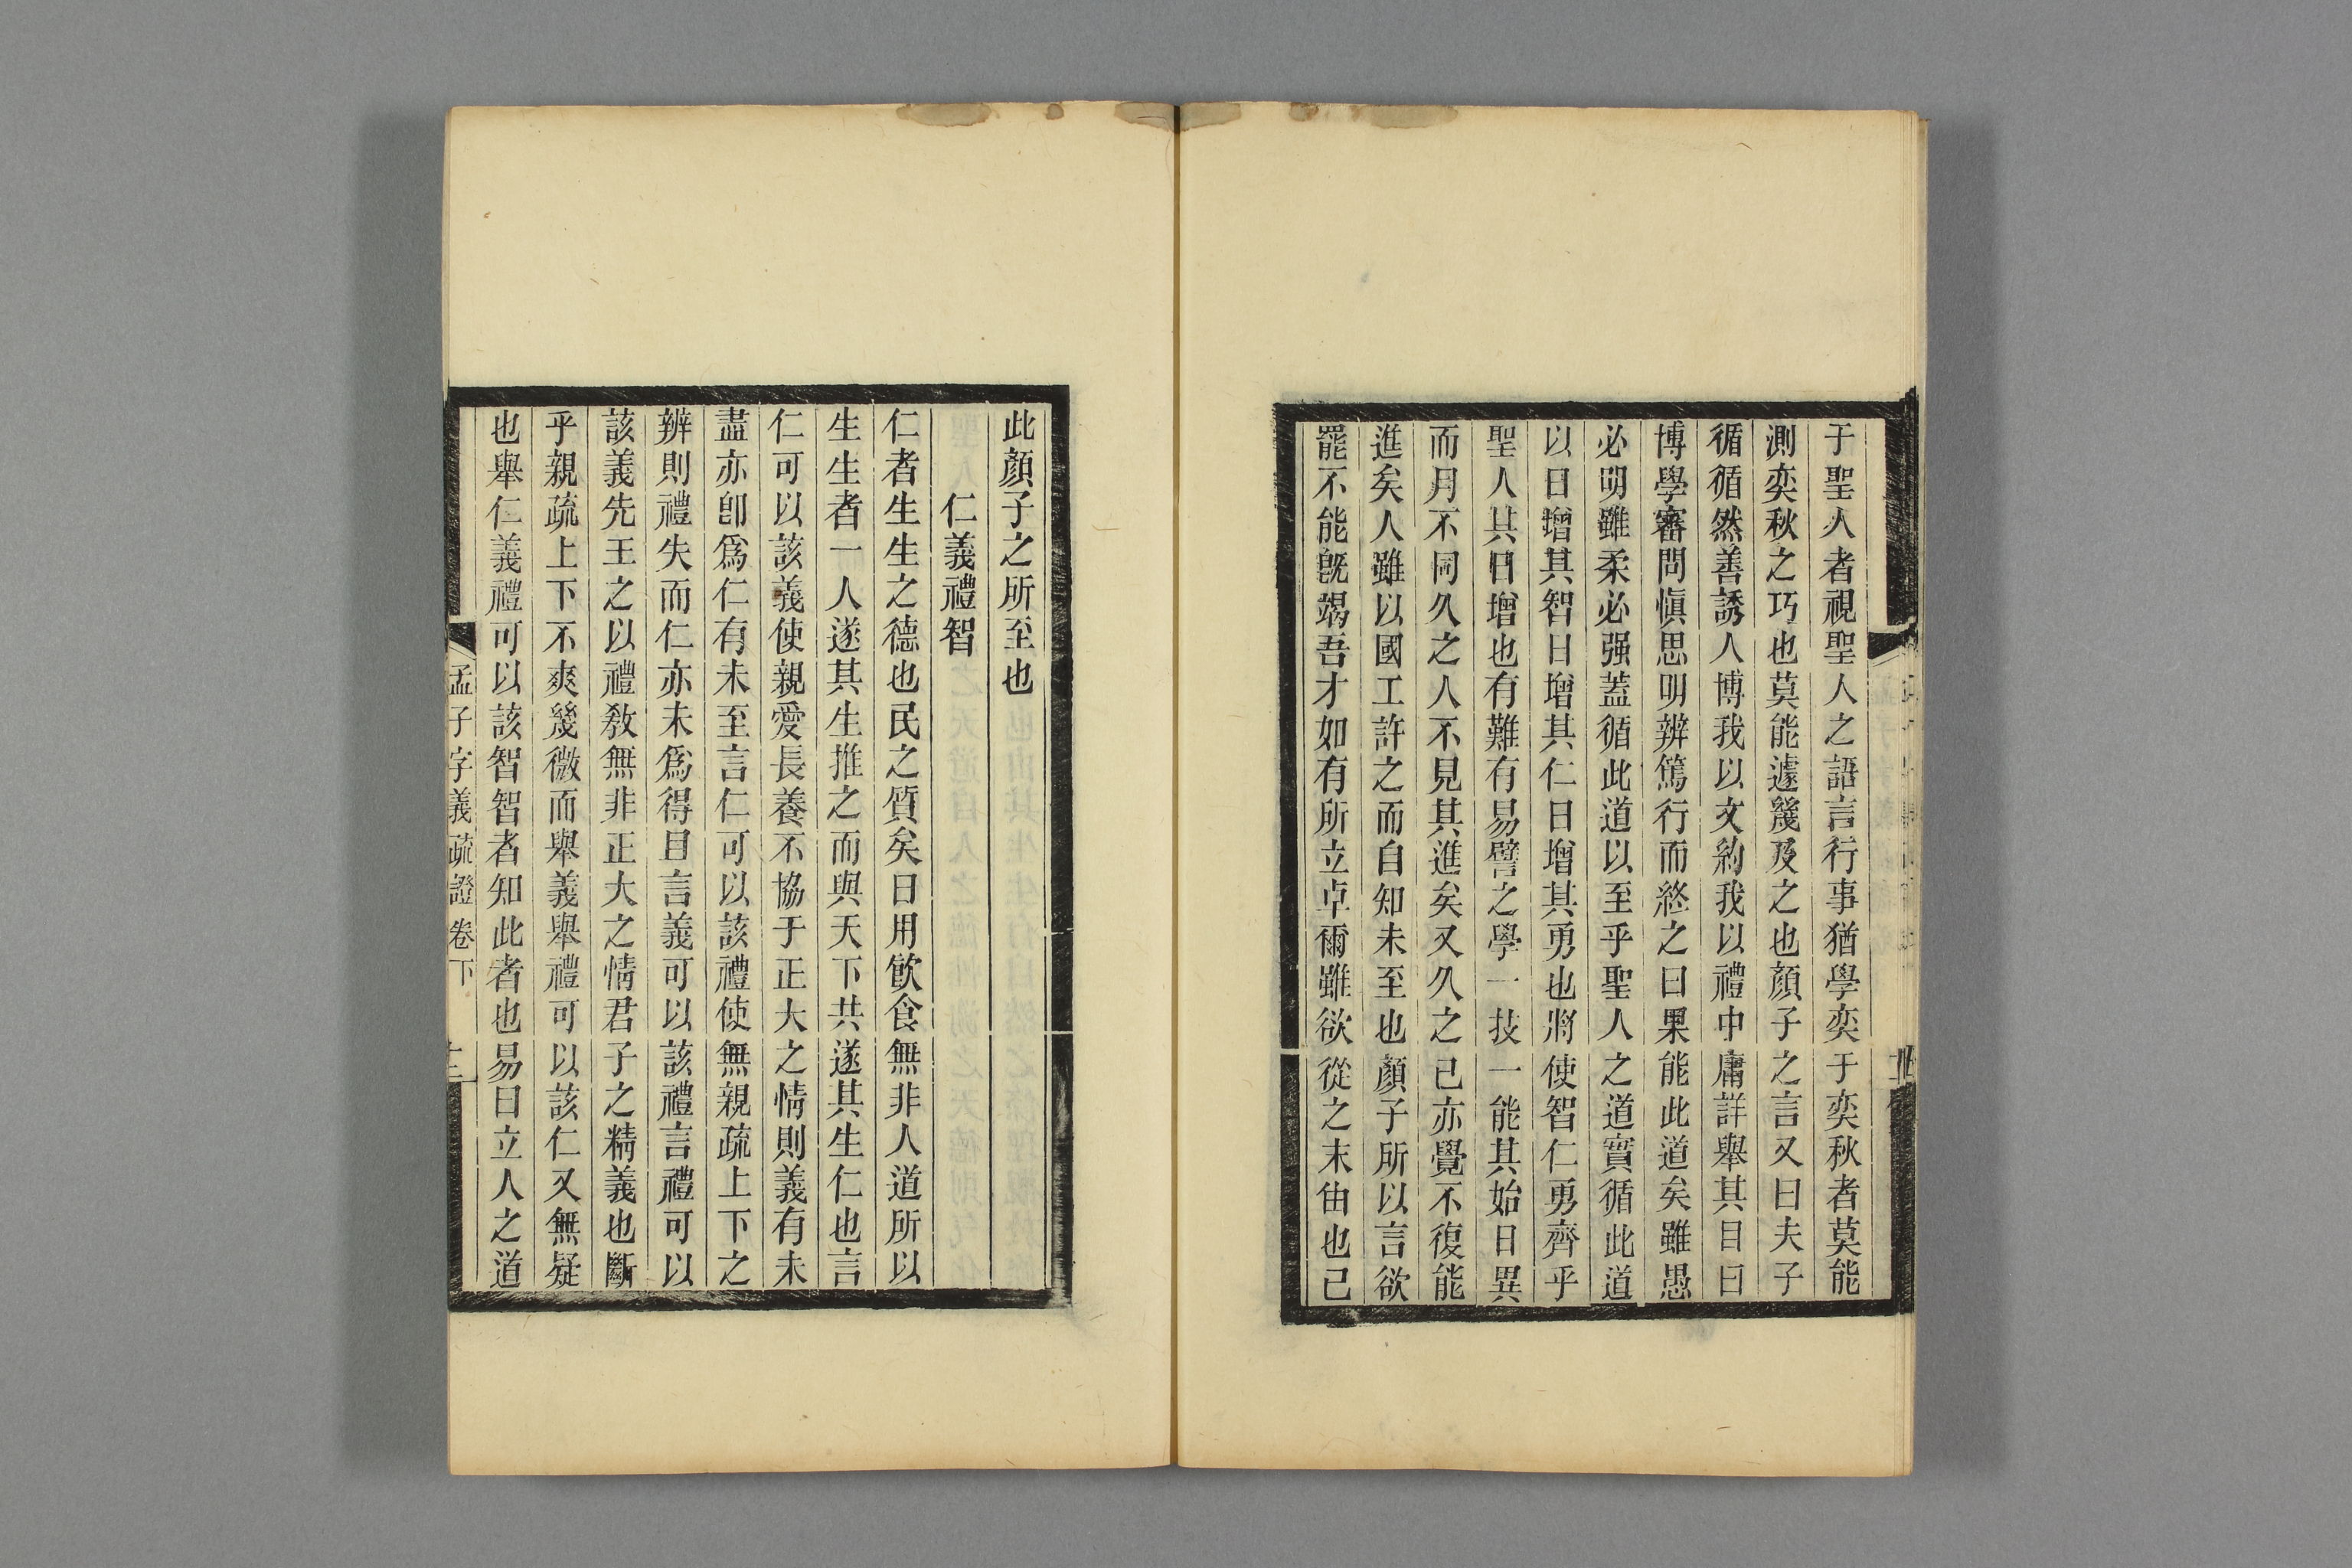 于聖人者視聖人之語言行事猶學奕于奕秋者莫能
測奕秋之巧也莫能遽幾及之也顏子之言又曰夫子
循循然善誘人博我以文約我以禮中庸詳舉其目曰
博學審問慎思明辨篤行而終之曰果能此道矣雖愚
必明雖柔必强蓋循此道以至乎聖人之道實循此道
以日增其智日增其仁日增其勇也將使智仁勇齊乎
聖人其日增也有難有易譬之學一技一能其始日異
而月不同久之人不見其進矣又久之已亦覺不復能
進矣人雖以國工許之而自知未至也顏子所以言欲
罷不能旣竭吾才如有所立卓爾雖欲從之末由也已
此顏子之所至也
仁義禮智
仁者生生之德也民之質矣日用飮食無非人道所以
生生者一人遂其生推之而與天下共遂其生仁也言
仁可以該義使親愛長養不協于正大之情則義有未
盡亦卽爲仁有未至言仁可以該禮使無親疏上下之
辨則禮失而仁亦未爲得且言義可以該禮言禮可以
該義先王之以禮敎無非正大之情君子之精義也斷
乎親疏上下不爽幾微而舉義舉禮可以該仁又無疑
也舉仁義禮可以該智智者知此者也易曰立人之道
孟子字義疏證卷下